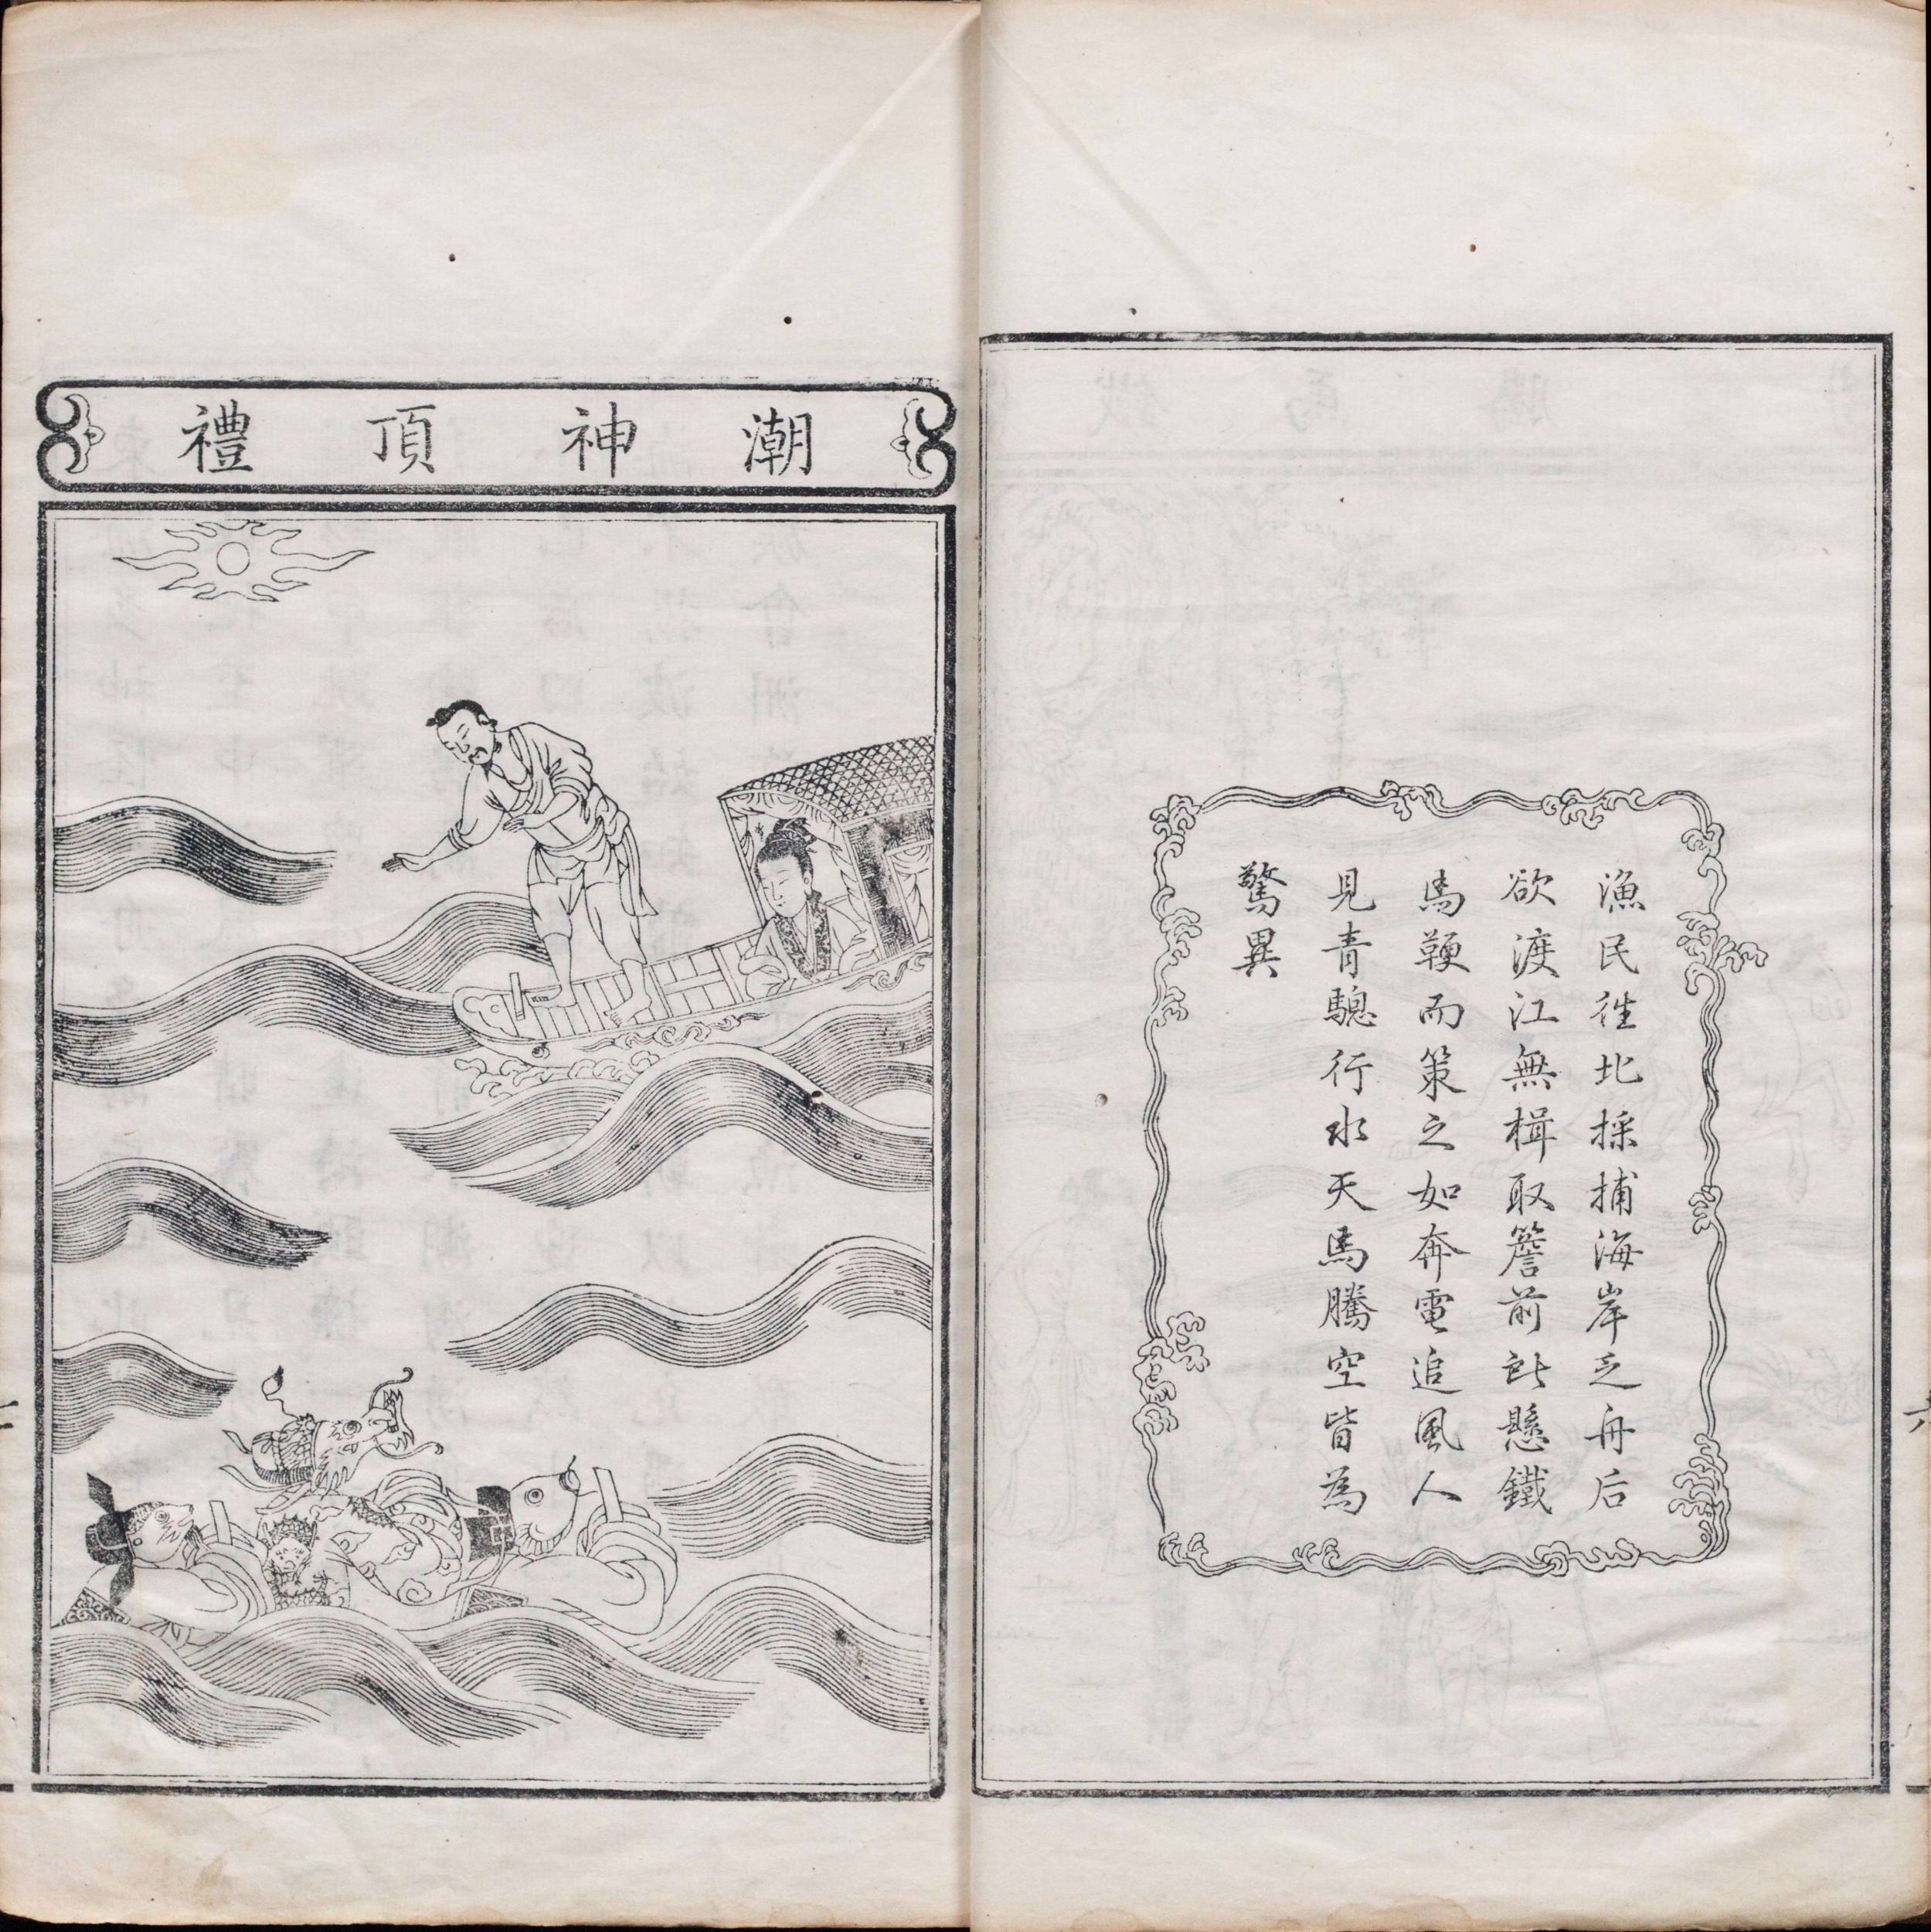 漁民往北採捕海岸乏舟后
欲渡江無楫取簷前所懸鐵
馬鞭而策之如奔電追風人
見青驄行水天馬騰空皆為
驚異
六
潮神頂禮